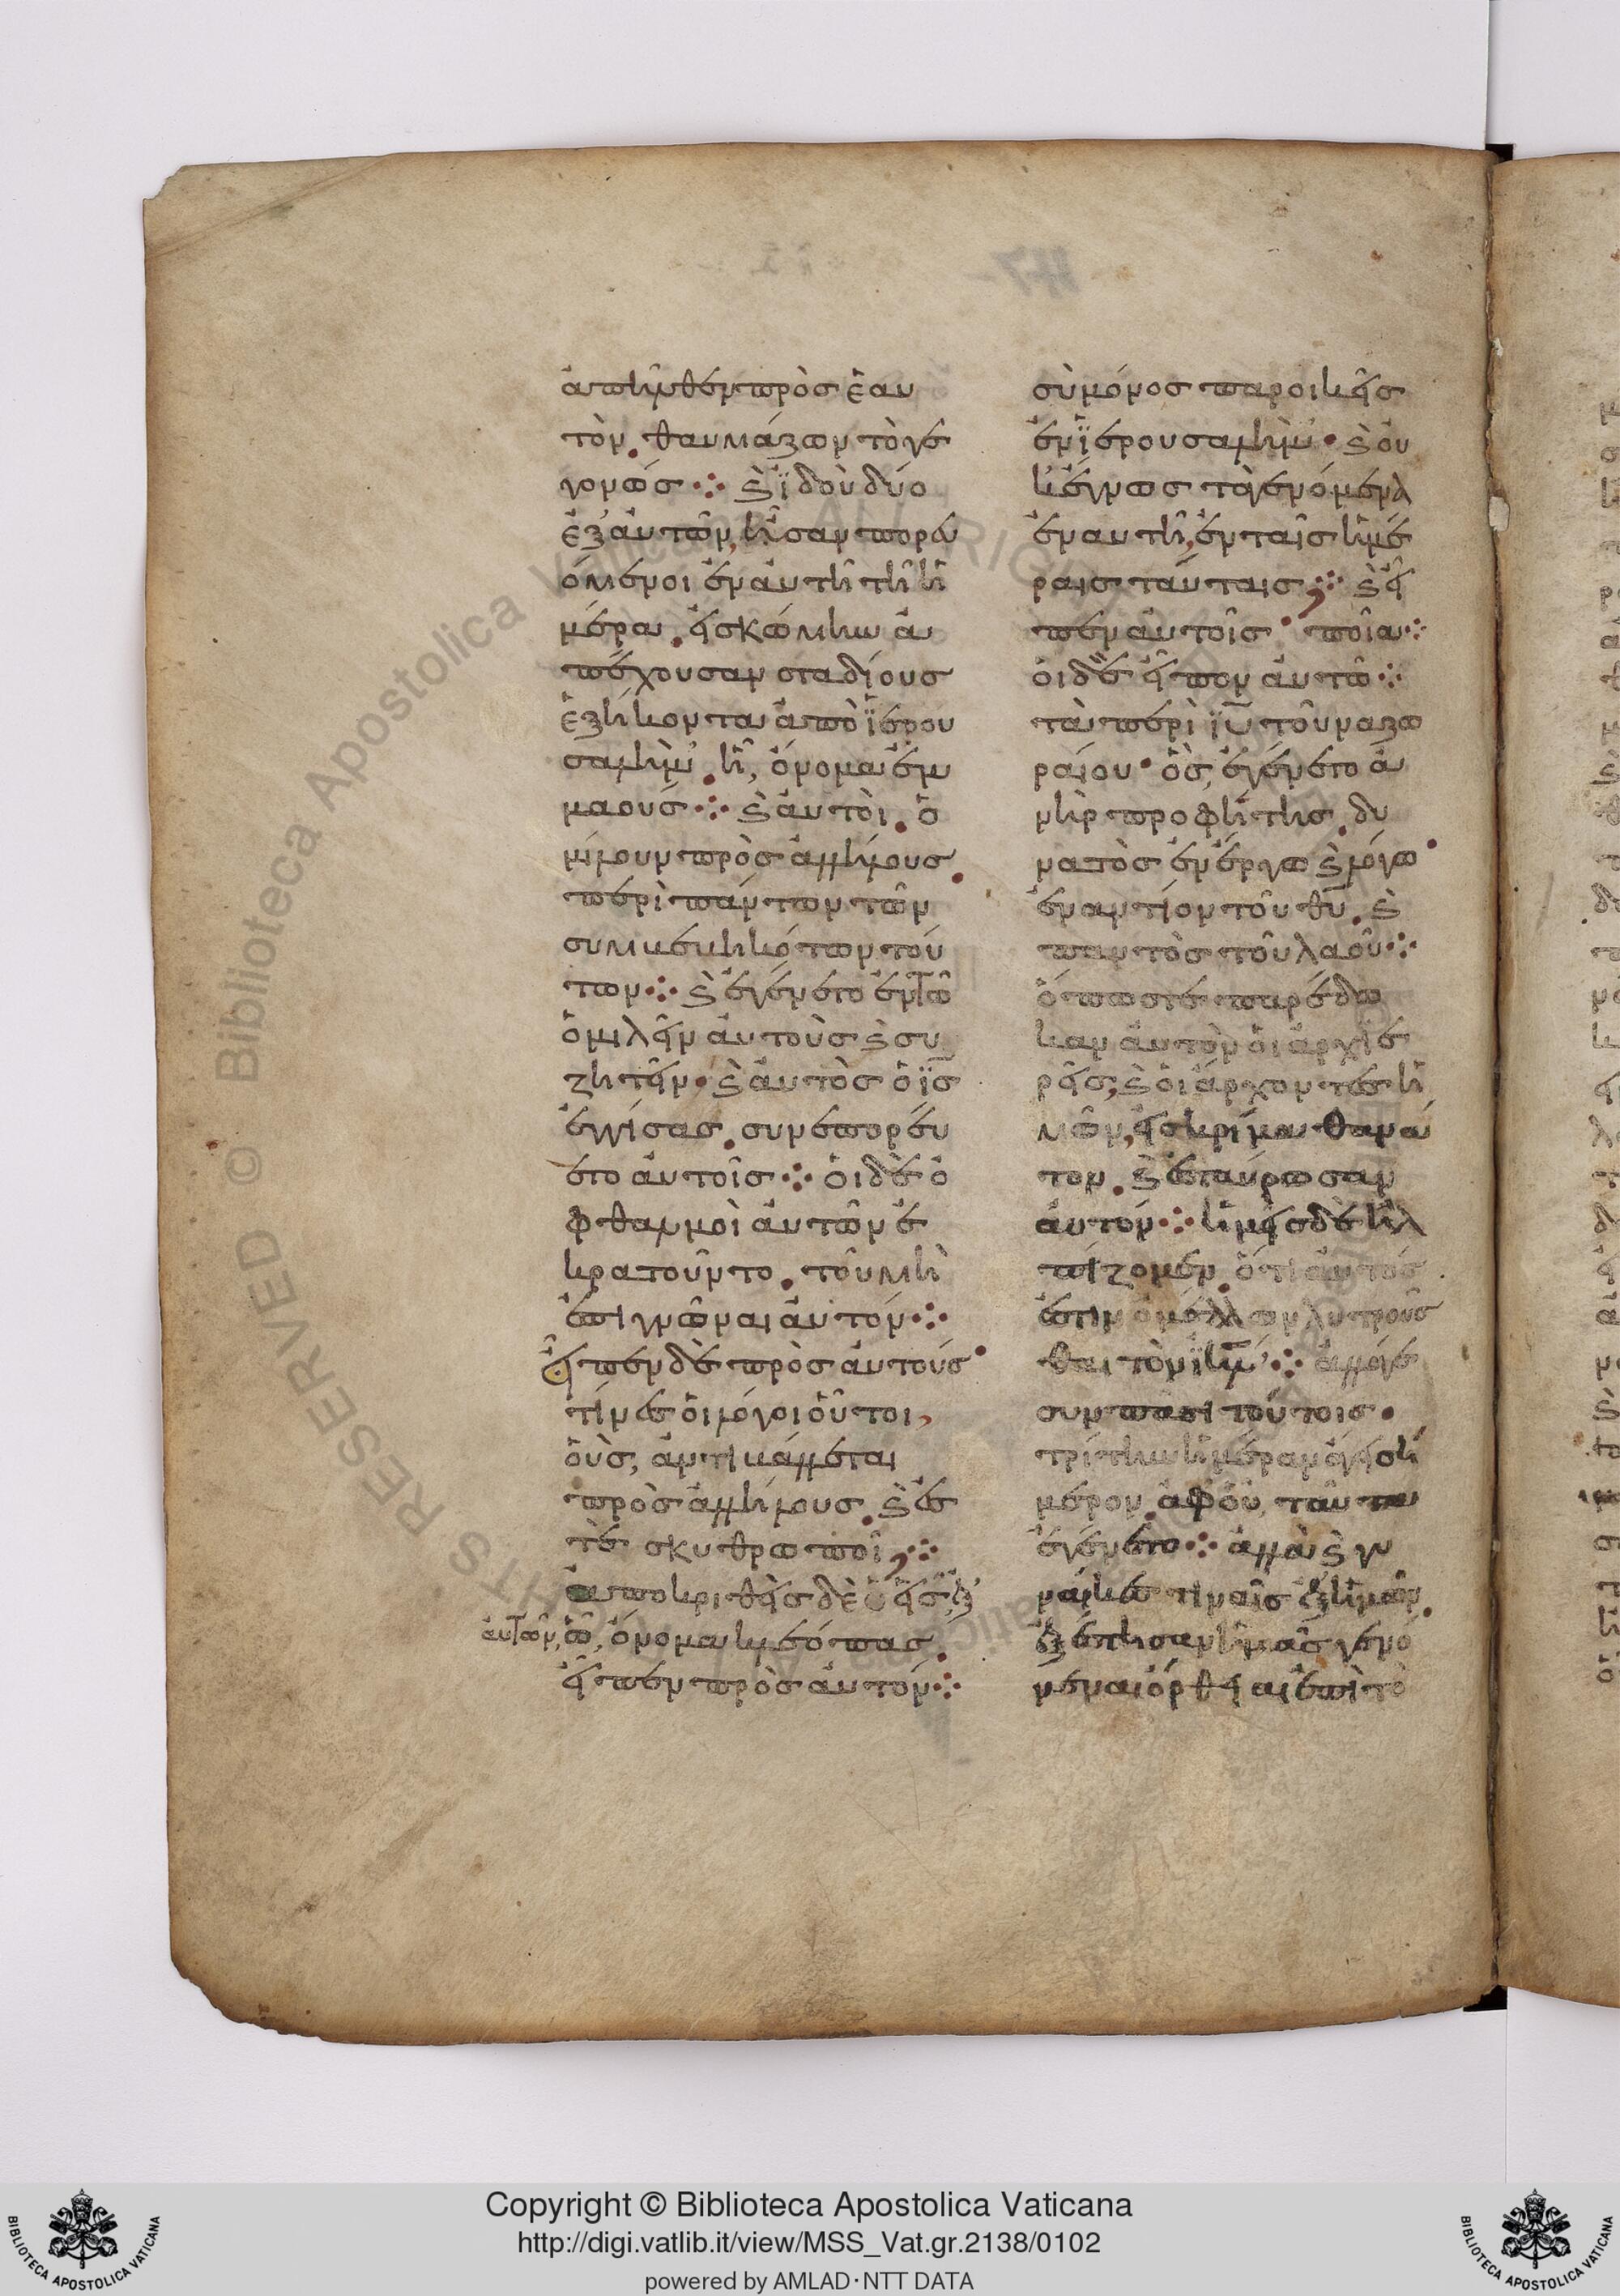 ἀπῆλθεν πρὸς ἑαυ
τὸν. θαυμάζων τὸ γε
γονώς ⁘ ϗ ἰδοὺ δύο
ἐξ αὐτῶν, ἦσαν πορευ
όμενοι ἐν αὐτῇ τῇ ἡ
μέρα. εἰς κώμην ἀ
πέχουσαν σταδίους
ἑξήκοντα ἀπὸ ἱερου
σαλήμ. ἧ, ὄνομα ἐμ
μαούς ⁘ ϗ αὐτοὶ. ὁ
μίλουν πρὸς ἀλλήλους.
περὶ πάντων τῶν
συμβεβηκότων τού
των ⁘ ϗ ἐγένετο ἐν τῶ
ὁμιλεῖν αὐτοὺς ϗ συ
ζητεῖν. ϗ αὐτὸς ὁ ις
ἐγγίσας. συνεπορεύ
ετο αὐτοῖς ⁘ οἱ δὲ ὀ
φθαλμοὶ αὐτῶν ἐ
κρατοῦντο. τοῦ μὴ
ἐπιγνῶναι αὐτόν ⁘
εἶπεν δὲ πρὸς αὐτούς.
τίνες οἱ λόγοι οὗτοι,
οὓς, ἀντιβάλλεται
πρὸς ἀλλήλους. ϗ ἐσ
τὲ σκυθρωποῖ, ⁘
ἀποκριθεὶς δὲ ὁ εἷς ἐξ
αὐτῶν, ὧ, ὄνομα κλεόπας.
εἶπεν πρὸς αὐτόν ⁘
σὺ μόνος παροικεῖς
ἐν ἱερουσαλήμ. ϗ οὐ
κ ἔγνως τὰ γενόμενα
ἐν αυτῆ, ἐν ταῖς ἡμέ
ραις ταύταις, ⁘ ϗ εἶ
πεν αὐτοῖς. ποῖα ⁘
οἱ δὲ εἶπον αὐτῶ ⁘
τὰ περὶ ιυ τοῦ ναζω
ραίου. ὃς, ἐγένετο ἀ
νὴρ προφήτης. δυ
νατὸς ἐν ἔργω ϗ λόγω.
ἐναντίον τοῦ θυ. ϗ
παντὸς τοῦ λαοῦ ⁘
ὅπως τὲ παρέδω
καν αὐτὸν οἱ ἀρχιε
ρεῖς, ϗ οἱ ἄρχοντες ἡ
μῶν, εἰς κρίμα θανά
του. ϗ ἐσταύρωσαν
αὐτόν ⁘ ἡμεῖς δὲ ἠλ
πίζομεν. ὅτι αὐτός
ἐστιν ὁ μέλλων λυτροῦσ
θαι τὸν ιηλ ⁘ ἀλλά γε
συν πᾶσι τούτοις.
τρίτην ἡμέραν ἄγει σή
μερον. ἀφ' οὗ, ταῦτα
ἐγένετο ⁘ ἀλλὰ ϗ γυ
ναίκες τιναῖς ἐξ ἡμῶν.
ἐξέστησαν ἡμᾶς γενό
μεναι ὄρθριαι ἐπὶ τὸ
Copyright © Biblioteca Apostolica Vaticana
http://digi.vatlib.it/view/MSS_Vat.gr.2138/0102
powered by AMLAD·NTT DATA
BIBLIOTECA APOSTOLICA VATICANA
BIBLIOTECA APOSTOLICA VATICANA